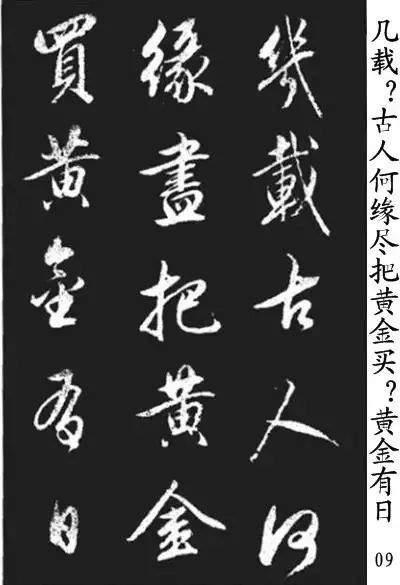 几载？古人何缘尽把黄金买？黄金有日
幾載古人何
緣盡把黄金
買黄金有日
09